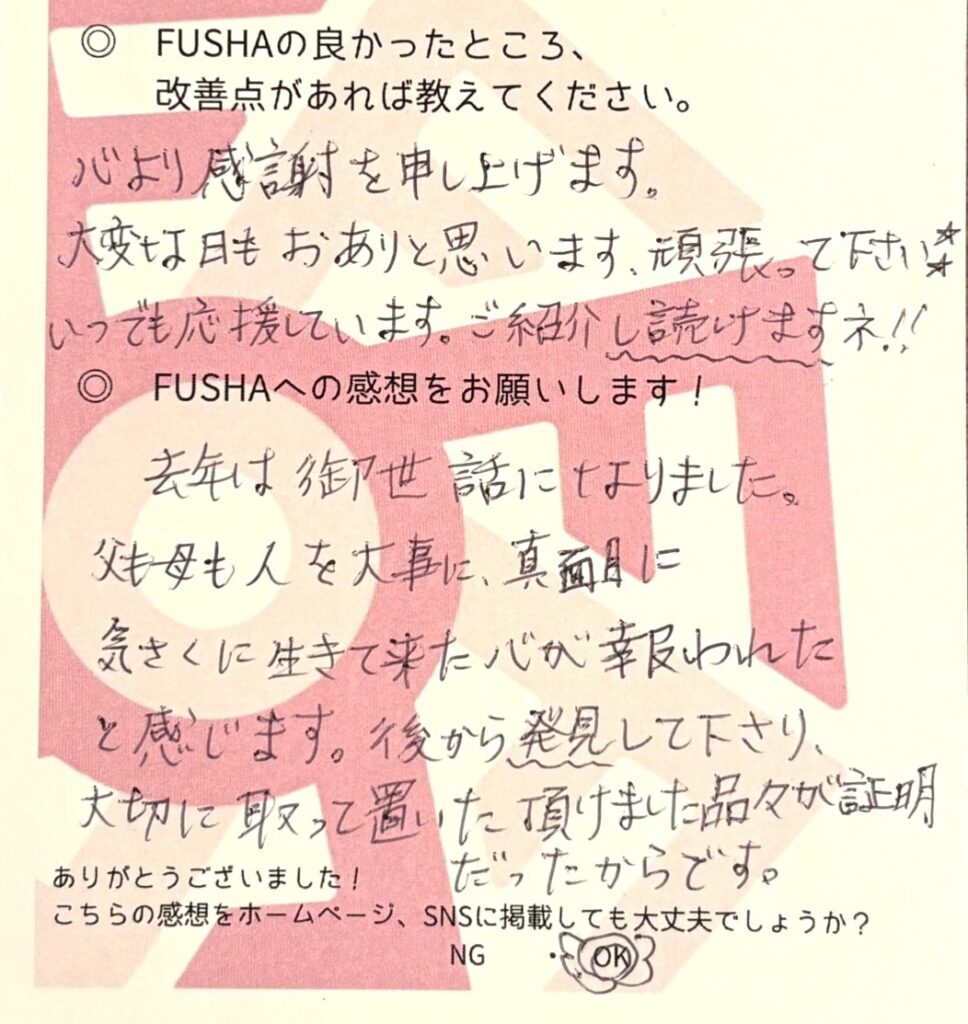 ◎ FUSHAの良かったところ、
改善点があれば教えてください。
心より感謝を申し上げます。
大変な日もおありと思います、頑張って下さい☆☆
いつでも応援しています。ご紹介し読けますネ!!
◎ FUSHAへの感想をお願いします！
去年は御世話になりました。
父も母も人を大事に、真面目に
気さくに生きて来た心が報われた
と感じます。後から発見して下さり、
大切に取って置いた頂けました品々が証明
だったからです。
ありがとうございました！
こちらの感想をホームページ、SNSに掲載しても大丈夫でしょうか？
NG ・ OK